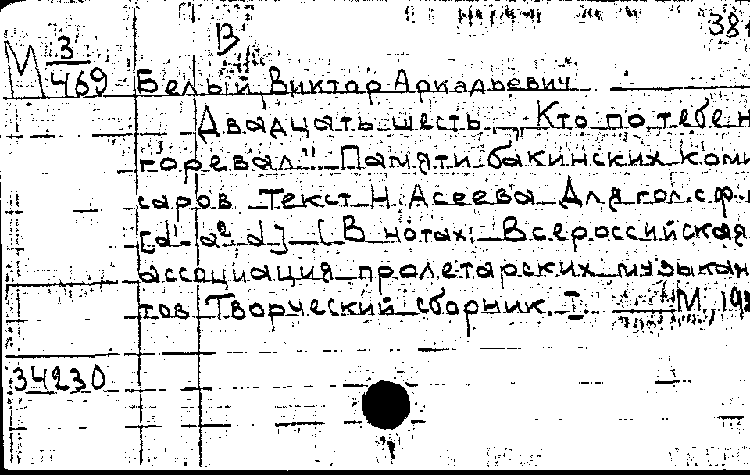 В 381
М 3/469 Белый Виктор Аркадьевич
Двадцать шесть „Кто по тебе н
горевал" Памяти бакинских коми
саров Текст Н. Асеева Для гол. с ф.
[d'-a² d] [В нотах: Всероссийская
ассоциация пролетарских музыкан
тов Творческий сборник. I М, 19
34230